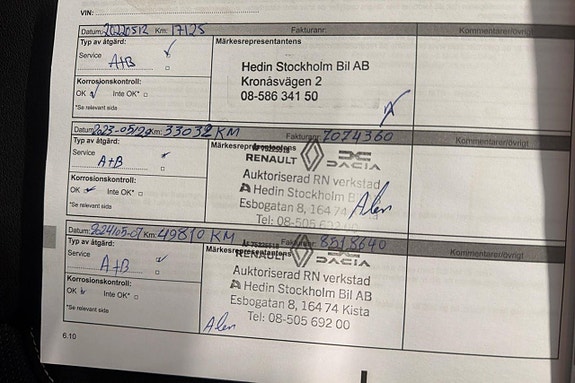 VIN:
Datum: 20220512 Km: 17125 Fakturanr: Kommentarer/övrigt
Typ av åtgärd: Märkesrepresentantens
Service A+B
Hedin Stockholm Bil AB
Kronåsvägen 2
08-586 341 50
Korrosionskontroll:
OK Inte OK*
*Se relevant sida
Datum: 2023-05/29 Km: 33032 KM Fakturanr: 7074360 Kommentarer/övrigt
Typ av åtgärd: Märkesrepresentantens
RENAULT DACIA
Service A+B
Auktoriserad RN verkstad
Hedin Stockholm
Esbogatan 8, 164 74
Tel: 08-505
Korrosionskontroll:
OK Inte OK*
*Se relevant sida
Alen
Datum: 2024/05-07 Km: 49810 KM Fakturanr: 8518640 Kommentarer/övrigt
Typ av åtgärd: Märkesrepresentantens
DACIA
Service A+B
Auktoriserad RN verkstad
Hedin Stockholm Bil AB
Esbogatan 8, 164 74 Kista
Tel: 08-505 692 00
Korrosionskontroll:
OK Inte OK*
*Se relevant sida
Alen
6.10